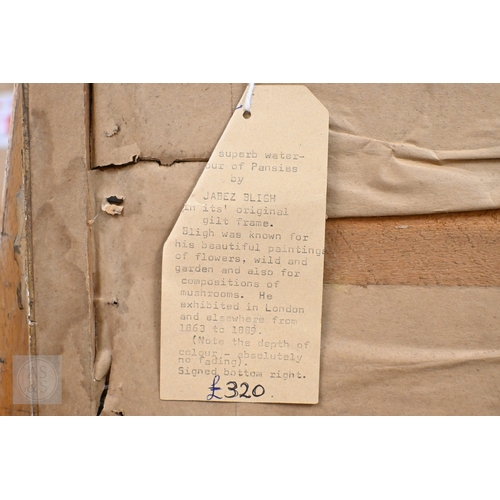 superb water-
our of Pansies
by
JABEZ BLIGH
in its' original
gilt frame.
Bligh was known for
his beautiful paintings
of flowers, wild and
garden and also for
compositions of
mushrooms. He
exhibited in London
and elsewhere from
1863 to 1889.
(Note the depth of
colour - absolutely
no fading).
Signed bottom right.
£320.